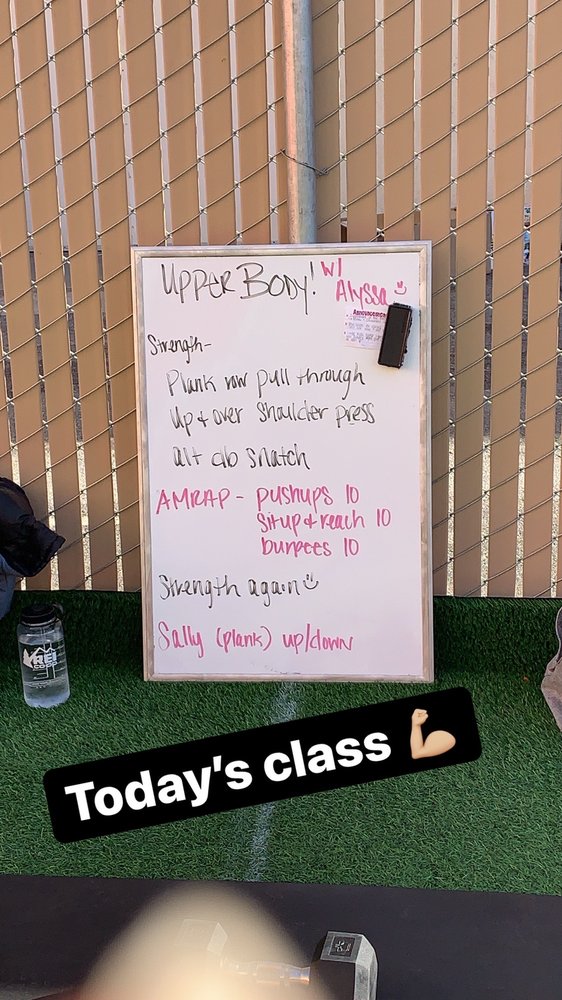 UPPER BODY! w/
Alyssa
Announcements
Strength-
Plank row pull through
Up + over shoulder press
alt db snatch
AMRAP - pushups 10
situp + reach 10
burpees 10
Strength again
Sally (plank) up/down
REI
CO-OP
Today's class 💪🏼